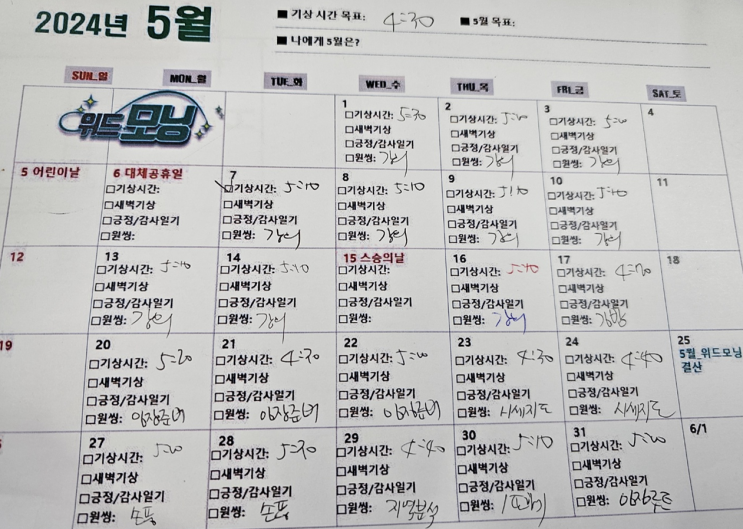 2024년 5월
■ 기상 시간 목표: 4:30 ■ 5월 목표:
■ 나에게 5월은?
SUN_일 MON_월 TUE_화 WED_수 THU_목 FRI_금 SAT_토
위드모닝
1
□기상시간: 5:30
□새벽기상
□긍정/감사일기
□원씽: 강의
2
□기상시간: 5:00
□새벽기상
□긍정/감사일기
□원씽: 강의
3
□기상시간: 5:00
□새벽기상
□긍정/감사일기
□원씽: 강의
4
5 어린이날
6 대체공휴일
□기상시간:
□새벽기상
□긍정/감사일기
□원씽:
7
□기상시간: 5:10
□새벽기상
□긍정/감사일기
□원씽: 강의
8
□기상시간: 5:10
□새벽기상
□긍정/감사일기
□원씽: 강의
9
□기상시간: 5:10
□새벽기상
□긍정/감사일기
□원씽: 강의
10
□기상시간:
□새벽기상
□긍정/감사일기
□원씽: 강의
11
12
13
□기상시간: 5:10
□새벽기상
□긍정/감사일기
□원씽: 강의
14
□기상시간: 5:10
□새벽기상
□긍정/감사일기
□원씽: 강의
15 스승의날
□기상시간:
□새벽기상
□긍정/감사일기
□원씽:
16
□기상시간: 5:10
□새벽기상
□긍정/감사일기
□원씽: 강의
17
□기상시간:
□새벽기상
□긍정/감사일기
□원씽:
18
19
20
□기상시간: 5:20
□새벽기상
□긍정/감사일기
□원씽: 임장준비
21
□기상시간: 4:30
□새벽기상
□긍정/감사일기
□원씽: 임장준비
22
□기상시간: 5:00
□새벽기상
□긍정/감사일기
□원씽: 임장준비
23
□기상시간: 4:30
□새벽기상
□긍정/감사일기
□원씽: 시세지도
24
□기상시간: 4:40
□새벽기상
□긍정/감사일기
□원씽: 시세지도
25
5월_위드모닝
결산
27
□기상시간: 5:00
□새벽기상
□긍정/감사일기
□원씽:
28
□기상시간: 5:30
□새벽기상
□긍정/감사일기
□원씽:
29
□기상시간: 4:40
□새벽기상
□긍정/감사일기
□원씽: 지역분석
30
□기상시간: 5:10
□새벽기상
□긍정/감사일기
□원씽:
31
□기상시간: 5:00
□새벽기상
□긍정/감사일기
□원씽: 임장루트
6/1